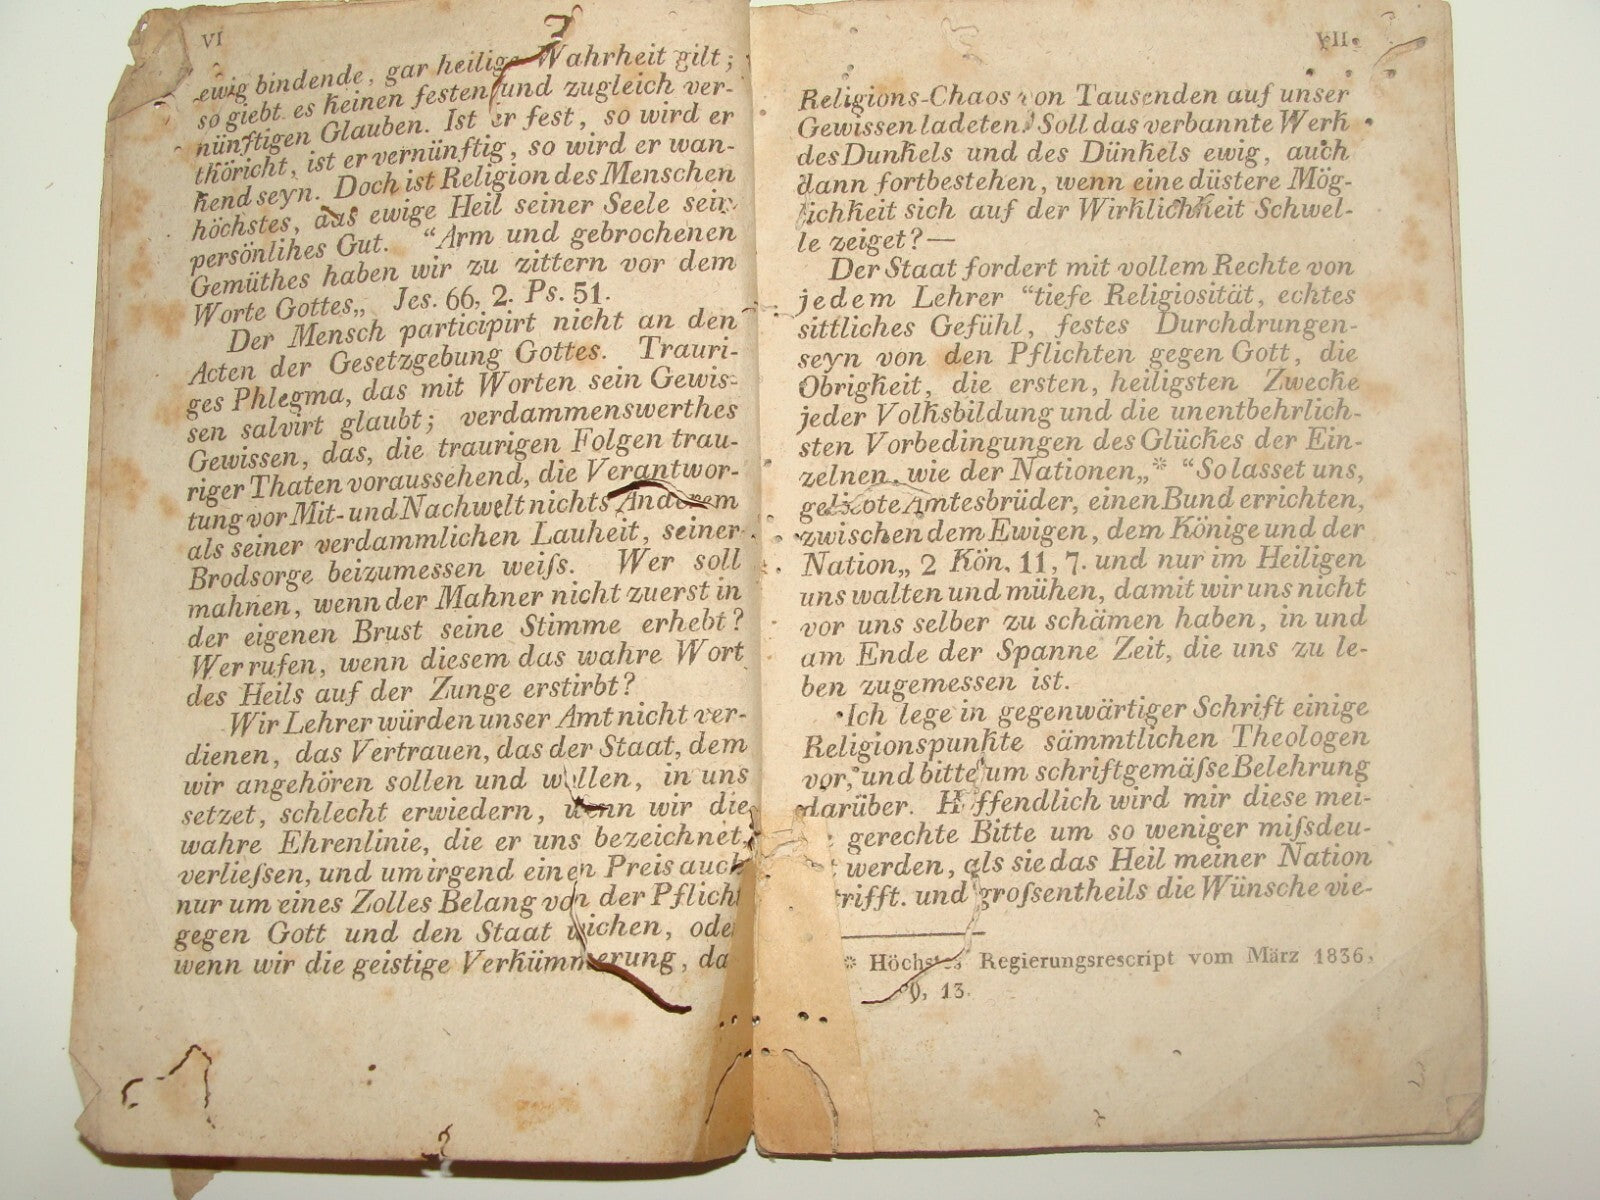 VI
ewig bindende, gar heilige Wahrheit gilt;
so giebt es keinen festen und zugleich ver-
nünftigen Glauben. Ist er fest, so wird er
thöricht, ist er vernünftig, so wird er wan-
kend seyn. Doch ist Religion des Menschen
höchstes, das ewige Heil seiner Seele sein
persönlihes Gut. “Arm und gebrochenen
Gemüthes haben wir zu zittern vor dem
Worte Gottes„ Jes. 66, 2. Ps. 51.
Der Mensch participirt nicht an den
Acten der Gesetzgebung Gottes. Trauri-
ges Phlegma, das mit Worten sein Gewis-
sen salvirt glaubt; verdammenswerthes
Gewissen, das, die traurigen Folgen trau-
riger Thaten voraussehend, die Verantwor-
tung vor Mit- und Nachwelt nichts Anderem
als seiner verdammlichen Lauheit, seiner
Brodsorge beizumessen weiſs. Wer soll
mahnen, wenn der Mahner nicht zuerst in
der eigenen Brust seine Stimme erhebt?
Wer rufen, wenn diesem das wahre Wort
des Heils auf der Zunge erstirbt?
Wir Lehrer würden unser Amt nicht ver-
dienen, das Vertrauen, das der Staat, dem
wir angehören sollen und wollen, in uns
setzet, schlecht erwiedern, wenn wir die
wahre Ehrenlinie, die er uns bezeichnet,
verlieſsen, und um irgend einen Preis auch
nur um eines Zolles Belang von der Pflicht
gegen Gott und den Staat wichen, oder
wenn wir die geistige Verkümmerung, da
VII
Religions-Chaos von Tausenden auf unser
Gewissen ladeten. Soll das verbannte Werk
des Dunkels und des Dünkels ewig, auch
dann fortbestehen, wenn eine düstere Mög-
lichkeit sich auf der Wirklichkeit Schwel-
le zeiget?—
Der Staat fordert mit vollem Rechte von
jedem Lehrer “tiefe Religiosität, echtes
sittliches Gefühl, festes Durchdrungen-
seyn von den Pflichten gegen Gott, die
Obrigkeit, die ersten, heiligsten Zwecke
jeder Volksbildung und die unentbehrlich-
sten Vorbedingungen des Glückes der Ein-
zelnen, wie der Nationen„* “So lasset uns,
geliebte Amtesbrüder, einen Bund errichten,
zwischen dem Ewigen, dem Könige und der
Nation„ 2 Kön. 11, 7. und nur im Heiligen
uns walten und mühen, damit wir uns nicht
vor uns selber zu schämen haben, in und
am Ende der Spanne Zeit, die uns zu le-
ben zugemessen ist.
Ich lege in gegenwärtiger Schrift einige
Religionspunkte sämmtlichen Theologen
vor, und bitte um schriftgemäſse Belehrung
darüber. Hoffendlich wird mir diese mei-
gerechte Bitte um so weniger miſsdeu-
werden, als sie das Heil meiner Nation
rifft. und groſsentheils die Wünsche vie-
* Höchstes Regierungsrescript vom März 1836,
13.